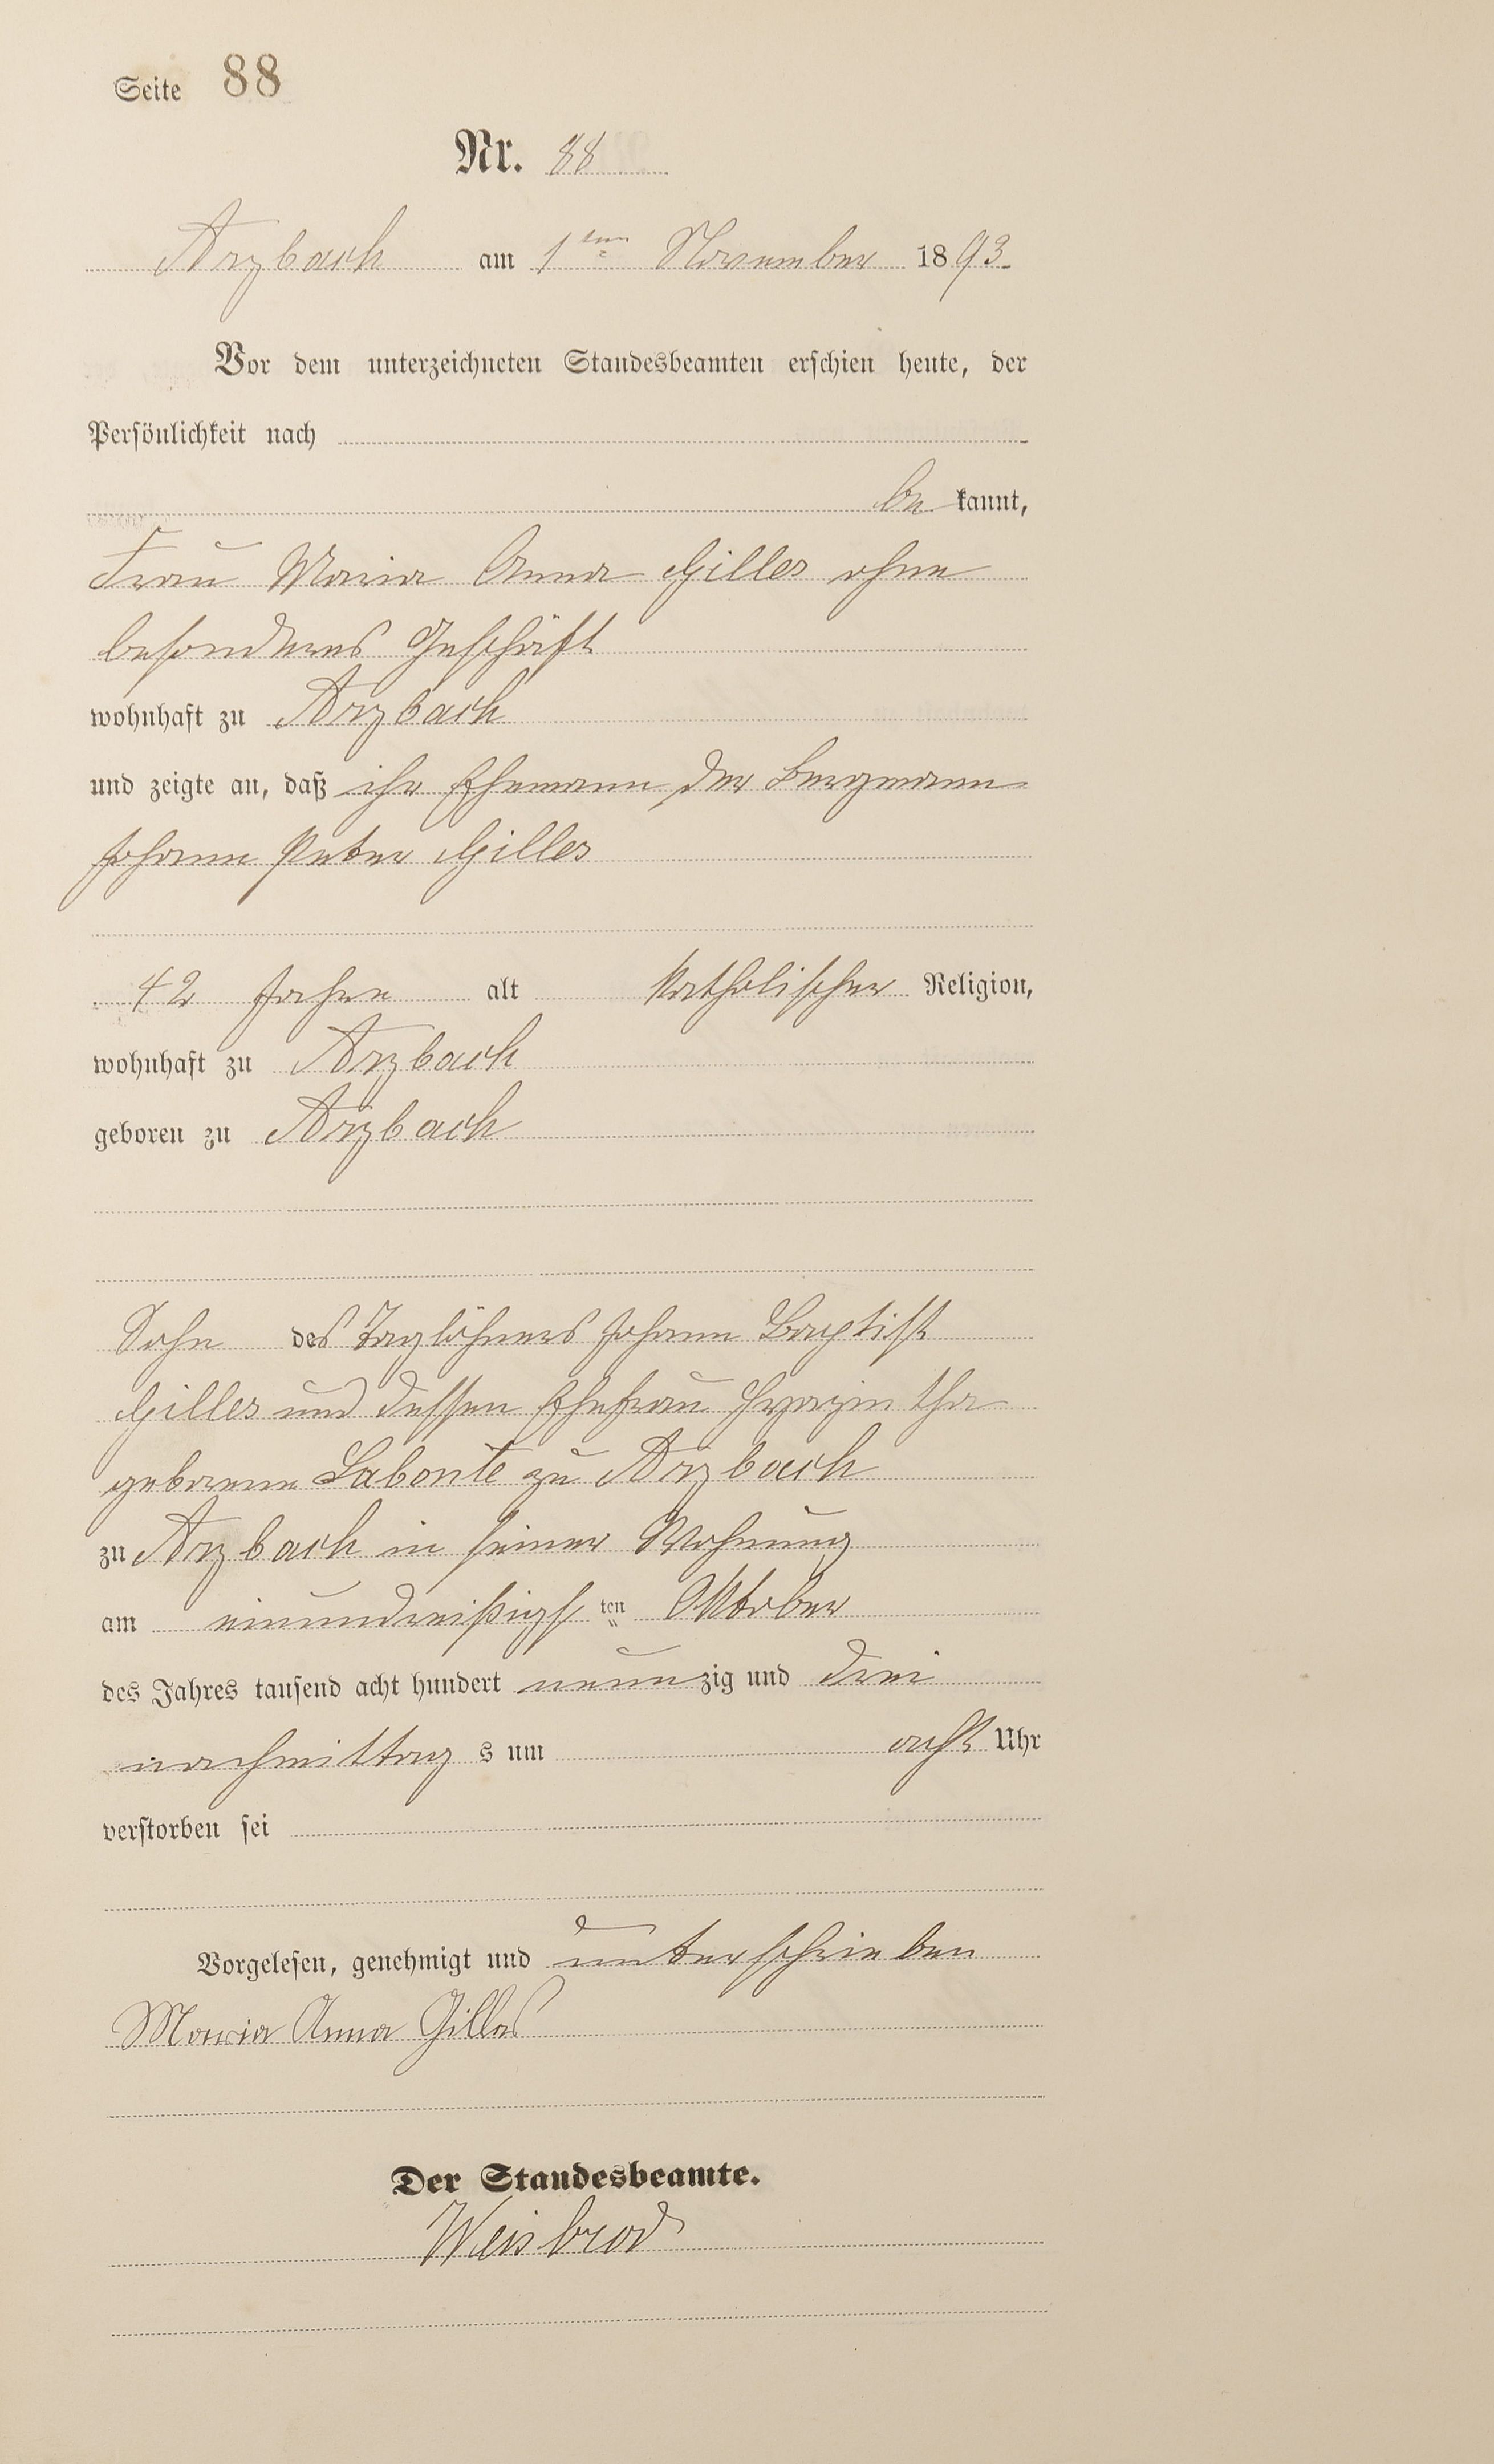 Seite 88
Nr. 88
Arzbach am 1ten November 1893.
Vor dem unterzeichneten Standesbeamten erschien heute, der
Persönlichkeit nach
be kannt,
Frau Maria Anna Gilles ohne
besonderes Geschäft
wohnhaft zu Arzbach
und zeigte an, daß ihr Ehemann der Bergmann
Johann Peter Gilles
42 Jahre alt katholischer Religion,
wohnhaft zu Arzbach
geboren zu Arzbach
Sohn des Taglöhners Johann Baptist
Gilles und dessen Ehefrau Hyazintha
geborene Labonte zu Arzbach
zu Arzbach in seiner Wohnung
am einunddreißigsten Oktober
des Jahres tausend acht hundert neunzig und drei
nachmittags um acht Uhr
verstorben sei
Vorgelesen, genehmigt und unterschrieben
Maria Anna Gilles
Der Standesbeamte.
Weisbrod